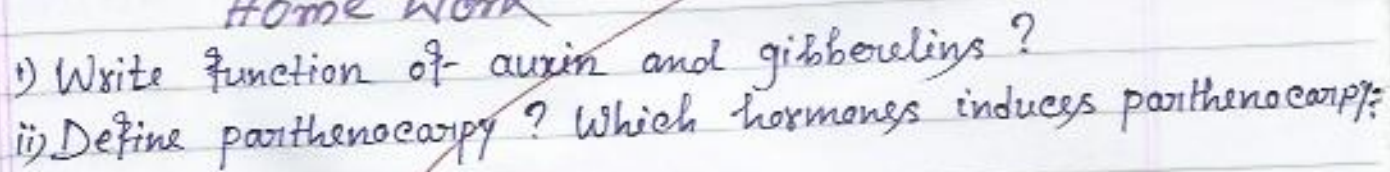 Home Work
i) Write function of auxin and gibberelins ?
ii) Define parthenocarpy ? Which hormones induces parthenocarpy?